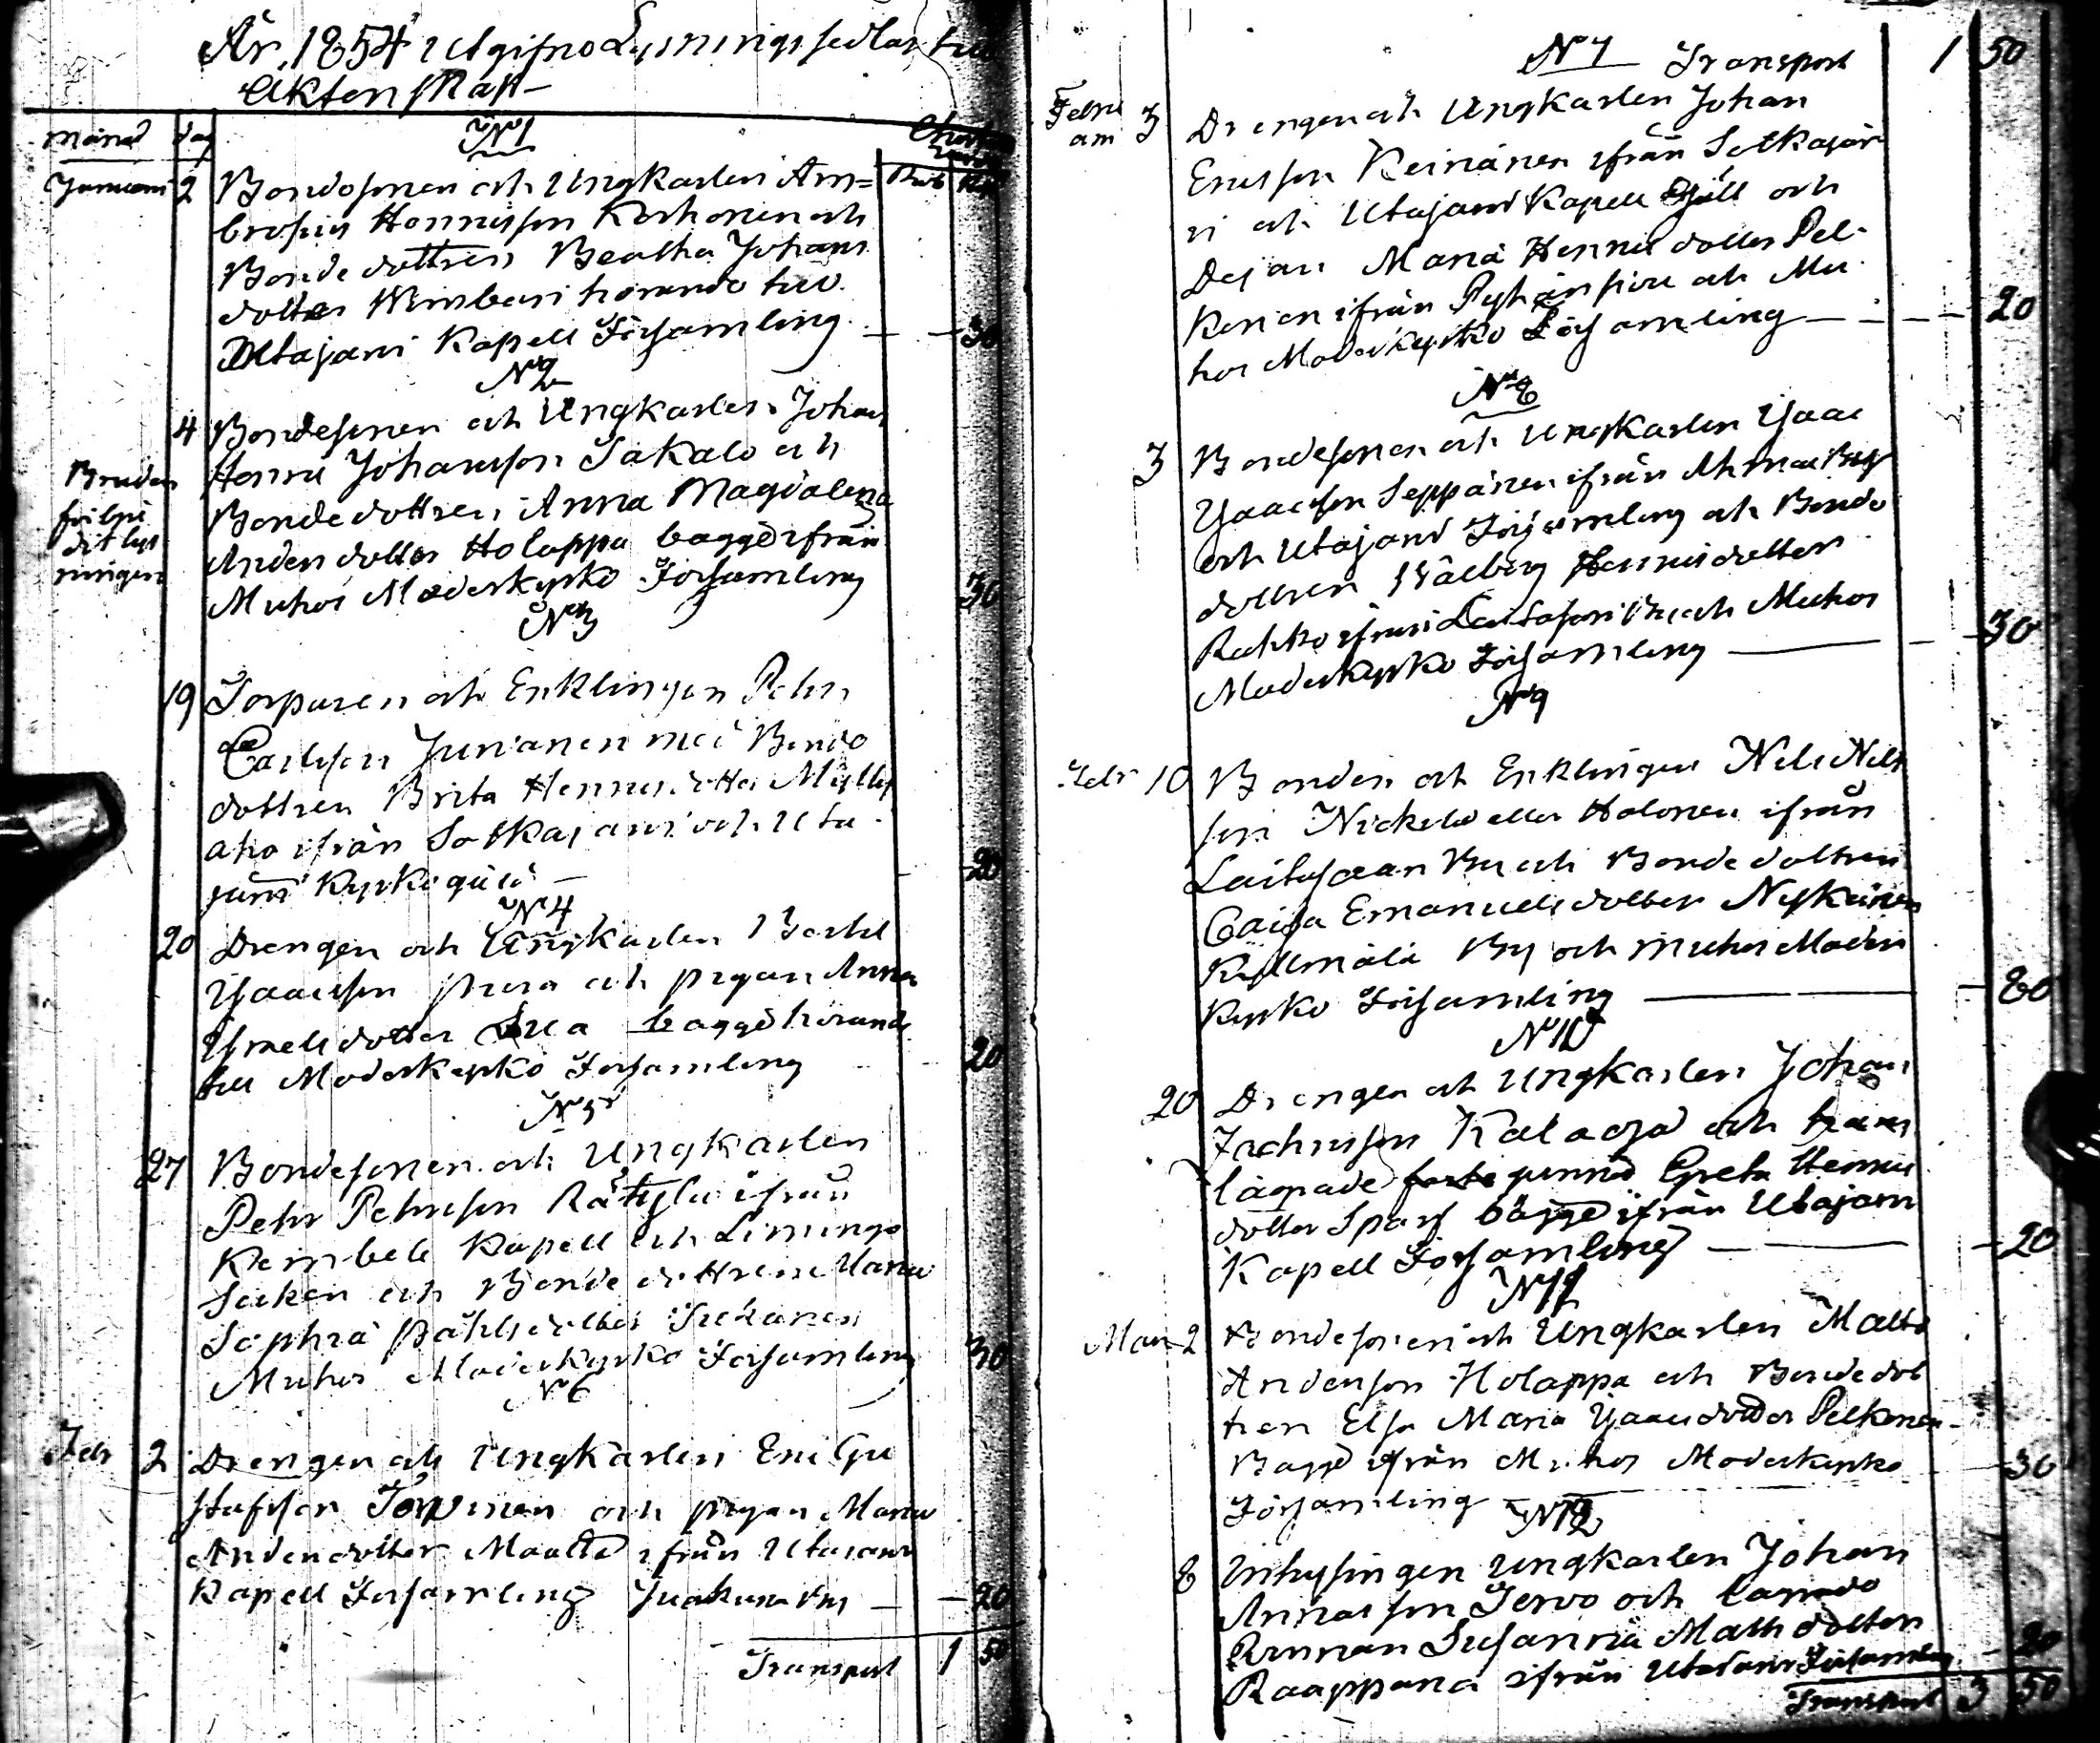 År 1854 utgifno Lysningssedlar till
Äktenskap
Månad dag No 1
Rub Kop
Januari 2 Bondesonen och Ungkarlen Am=
brosius Hennisson Korhonen och
Bonde dottren Beatha Johans
dotter Wimbari hörande till
Utajärvi Kapell Församling — 30
No 2
4 Bondesonen och Ungkarlen Johan
Henric Johansson Sakalo och
Bonde dottren Anna Magdalena
Anders dotter Holappa bägge ifrån
Muhos Moderkyrko Församling 30
Bruden
ningen
No 3
19 Torparen och Enklingen Pehr
Carlsson Junianen med Bonde
dottren Brita Hennus dotter Mylly
aho ifrån Sotkajärvi och Uta
järvi Kyrkogäld — 20
No 4
20 Drengen och Ungkarlen Bertel
Isaacsson Pura och pigan Anna
Israels dotter bägge hörande
till Moderkyrko Församling 20
No 5
27 Bondesonen och Ungkarlen
Pehr Pehrsson Rätylä ifrån
Kembele Kapell och Limingo
Socken och Bonde dottren Maria
Sophia Påhls dotter
Muhos Moderkyrko Församling 30
No 6
Febr 2 Drengen och Ungkarlen Eric Gu
stafsson Torvinen och pigan Maria
Anders dotter Maatta ifrån Utajärvi
Kapell Församling Juorkuna By — 20
Transport 1 50
No 7 Transport 1 50
Febru
ari 3 Drengen och Ungkarlen Johan
Ericsson Keinänen ifrån Sotkajär
vi och Utajärvi Kapell Gäll och
Dejan Maria Hennus dotter Pel-
konen ifrån Pyhänsivu och Mu
hos Moderkyrko Församling — 20
No 8
3 Bondesonen och Ungkarlen Isaac
Isaacsson Seppänen ifrån Ahmas By
och Utajärvi Församling och Bonde
dottren Wålborg Hennusdotter
Rahko ifrån Laitasari By och Muhos
Moderkyrko Församling — 30
No 9
Febr 10 Bonden och Enklingen Nils Nils
son Nickula eller Holonen ifrån
Laitasaari By och Bonde dottren
Caisa Emanuels dotter Nykänen
Kyllmälä By och Muhos Moder
Kyrko Församling — 80
No 10
20 Drengen och Ungkarlen Johan
Zachrisson Kalaoja och
lägrade qvinna Greta Hennus
dotter Sparf bägge ifrån Utajärvi
Kapell Församling — 20
No 11
Mars 2 Bondesonen och Ungkarlen Matts
Andersson Holappa och Bonde dot
tren Elsa Maria Isaacs dotter Pelkonen
Bägge ifrån Muhos Moderkyrko 30
Församling
No 12
8 Inhysingen Ungkarlen Johan
Andersson Jervo och
Qvinnan Susanna Matts dotter
Raappana ifrån Utajärvi Församling 20
Transport 3 50